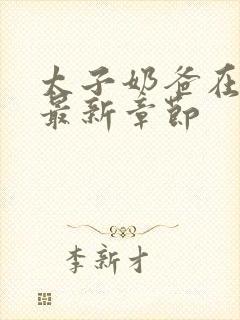 太子奶爸在
最新章节
李新才